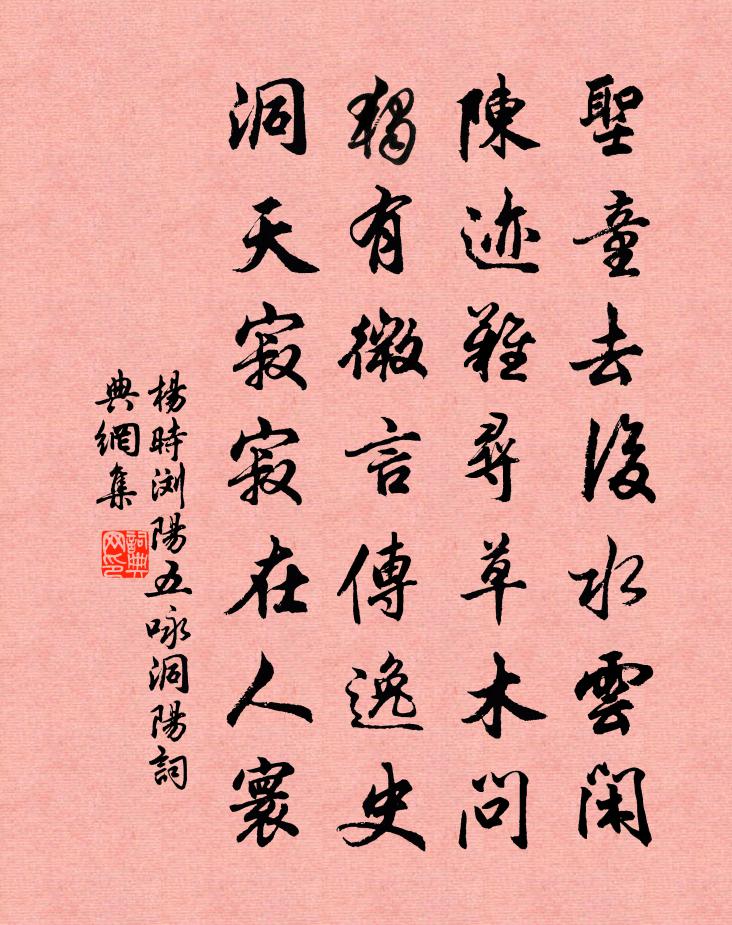 聖童去後水雲閑
陳迹難尋草木問
獨有微言傳逸史
洞天寂寂在人寰
楊時浏陽五咏洞陽詞
典網集
詞典
网印